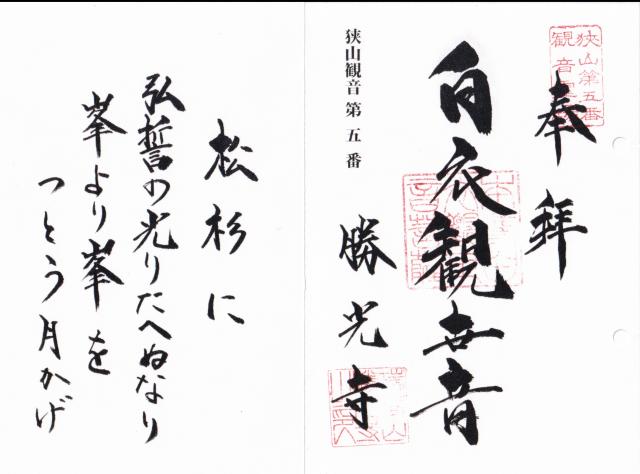 奉拝
狭山第五番
観音
白衣観世音
狭山観音第五番
勝光寺
松杉に
弘誓の光りたへぬなり
峯より峯を
つとう月かげ